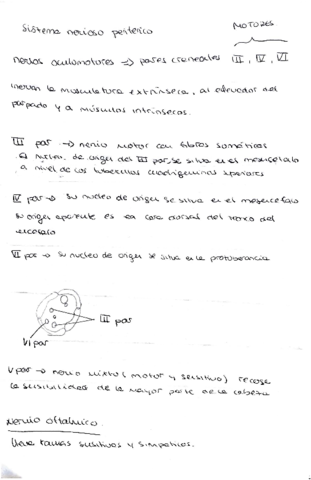 MOTORES
Sistema nervioso periférico
nervios oculomotores => pares craneales III, IV, VI
inervan la musculatura extrínseca, al elevador del
párpado y a músculos intrínsecos.
III par -> nervio motor con fibras somáticas
El núcleo de origen del III par se situa en el mesencefalo
a nivel de los tuberculos cuadrigeminos superiores
IV par -> Su nucleo de origen se situa en el mesencefalo
su origen aparente es la cara dorsal del tronco del
encefalo
VI par -> Su nucleo de origen se situa en la protuberancia
III par
VI par
V par -> nervio mixto (motor y sensitivo) recoge
la sensibilidad de la mayor parte de la cabeza
Nervio oftalmico
lleva ramas sensitivas y simpaticas.